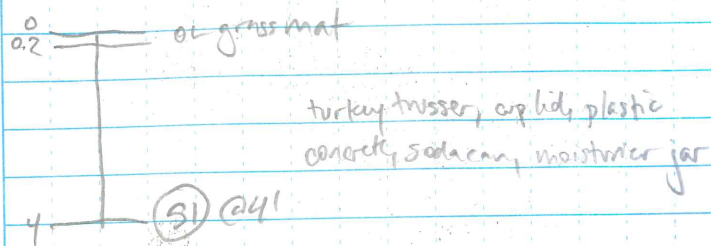 0
0.2 OL grass mat
turkey trusser, cup lid, plastic
concrete, sodacan, moisturier jar
4 S1 @4'